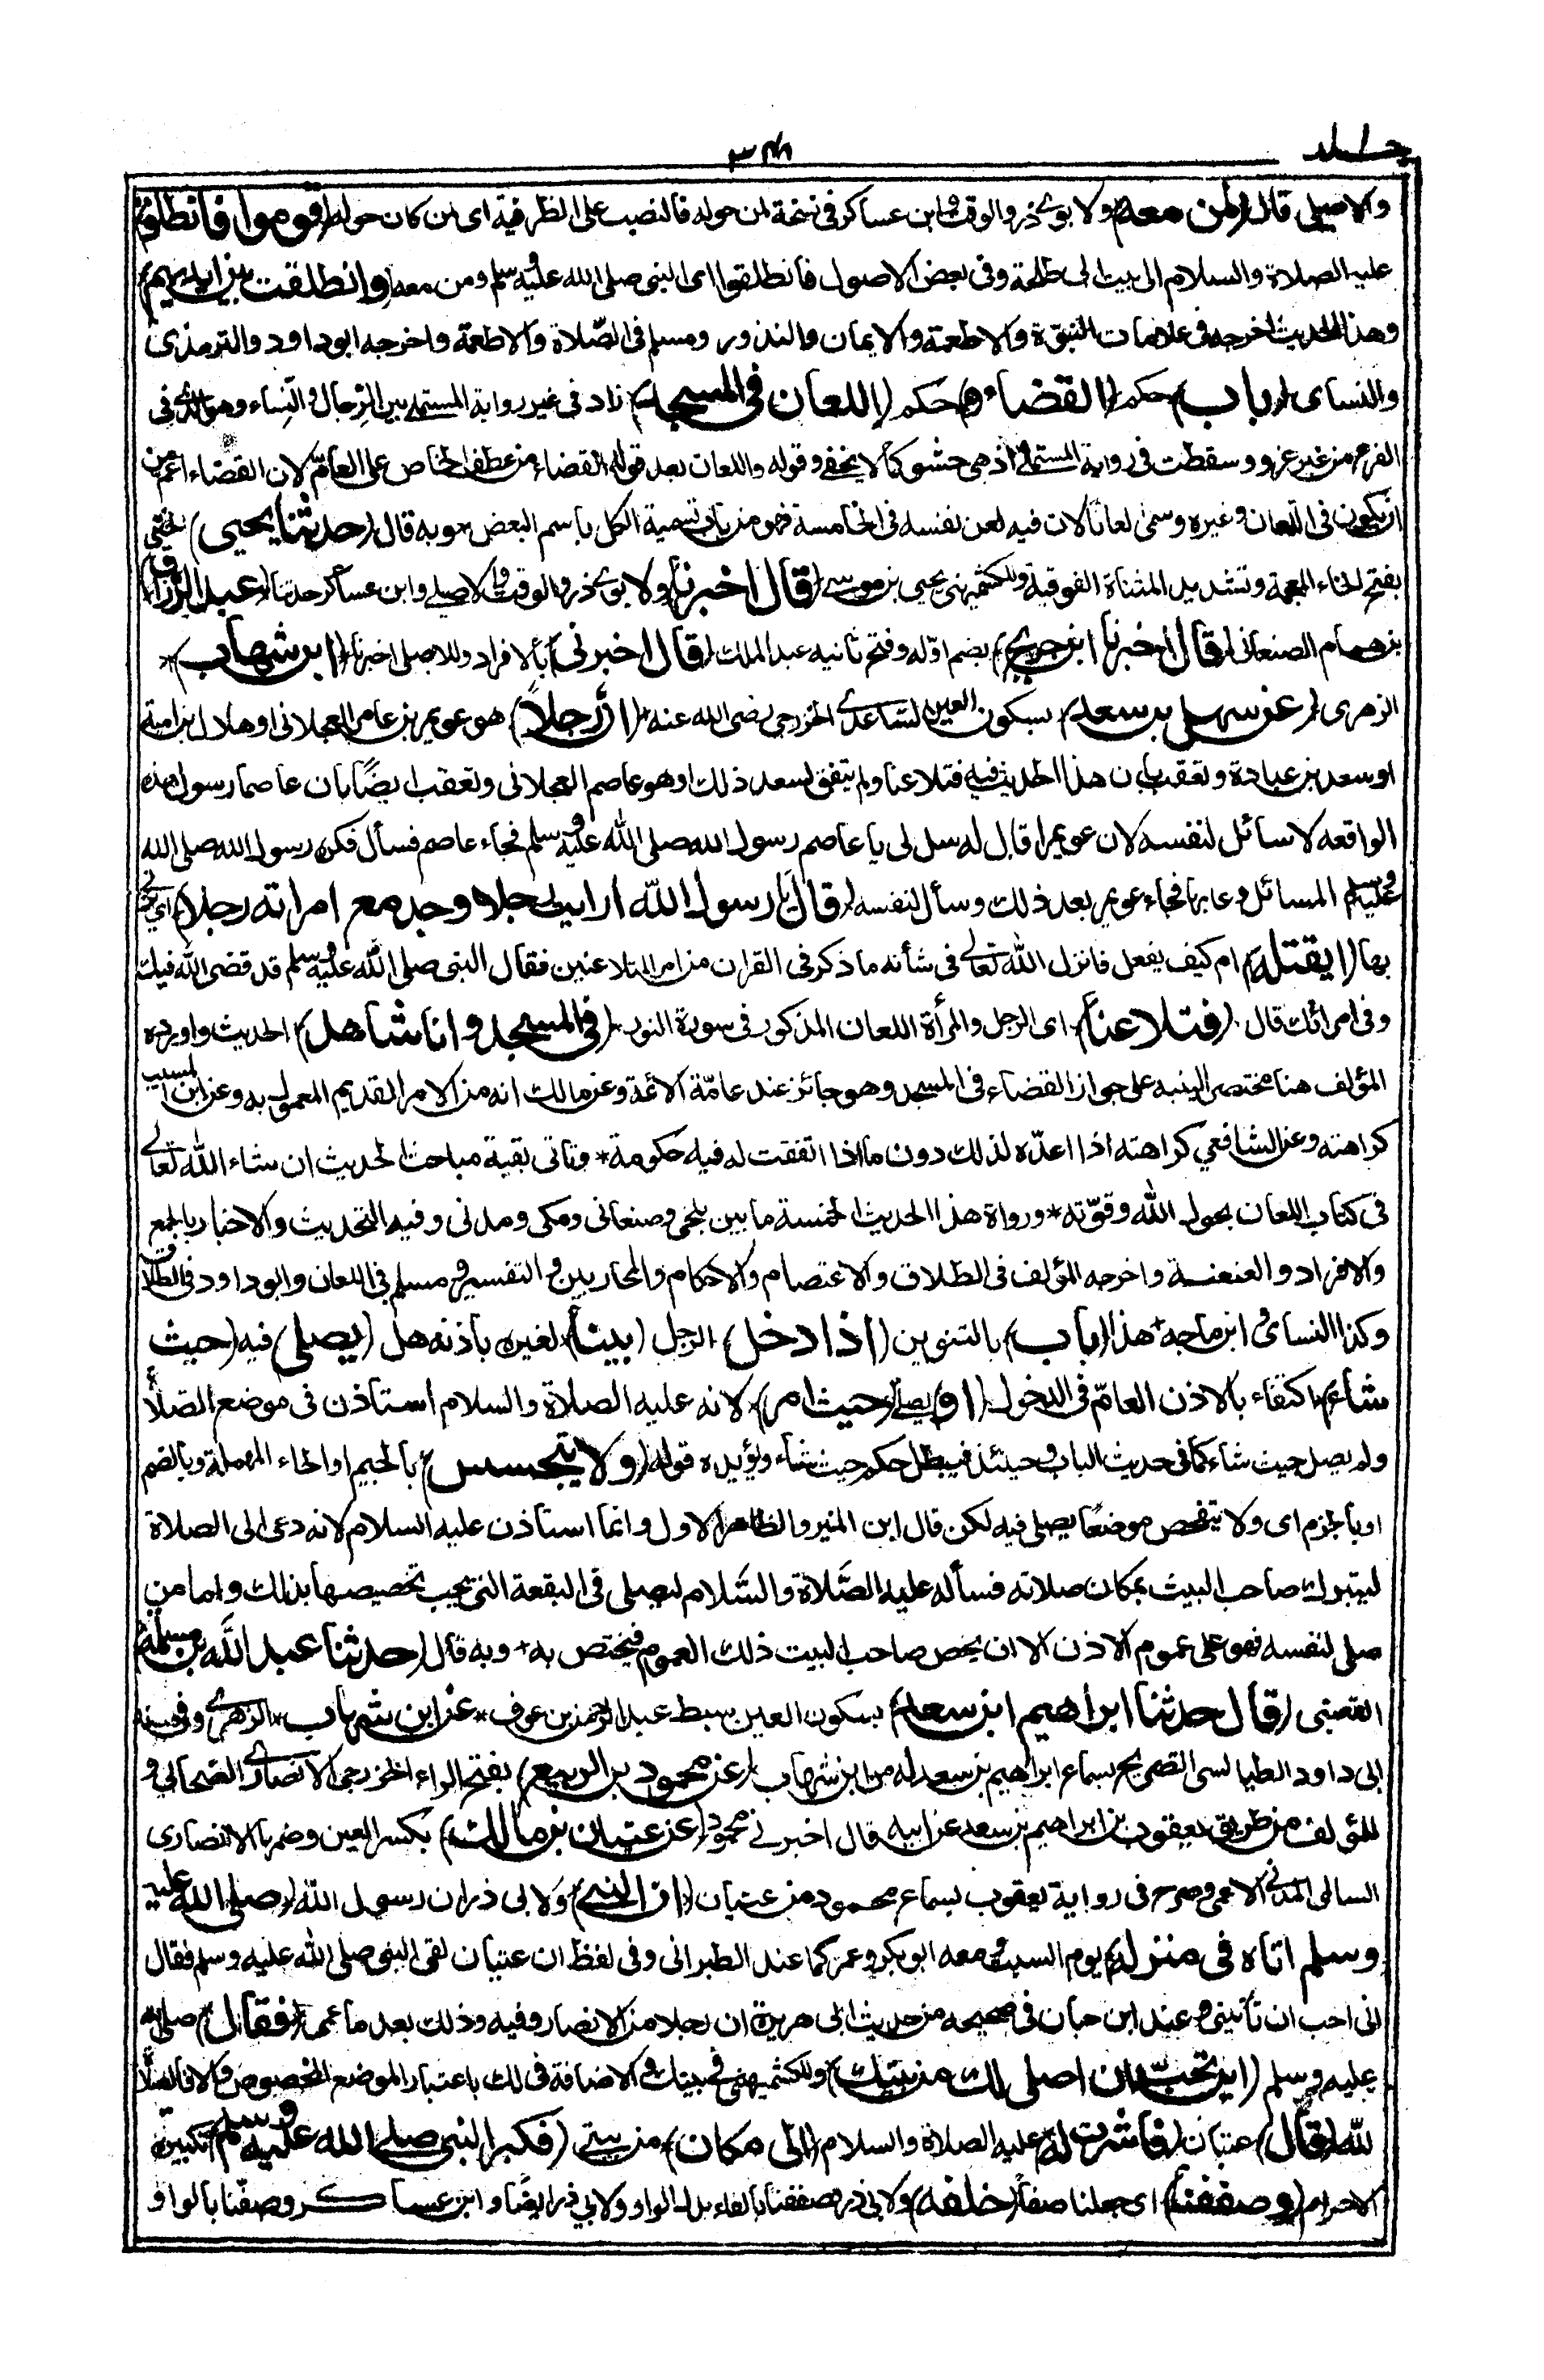 جلد ١
٣٤٨
والاصيلى قال (لمن معه) ولا بوى ذر والوقت وابن عساكر فى نسخة لمن حوله فالنصب على الظرفية اى لمن كان حوله (قوموا فانطلق)
عليه الصلاة والسلام الى بيت ابى طلحة وفى بعض الاصول فانطلقوا اى النبى صلى الله عليه وسلم ومن معه (وانطلقت بين ايديهم)
وهذا الحديث اخرجه فى علامات النبوّة والاطعمة والايمان والنذور ومسلم فى الصّلاة والاطعمة واخرجه ابو داود والترمذى
والنساى (باب) حكم (القضاء و) حكم (اللعان فى المسجد) زاد فى غير رواية المستملى بين الرّجال والنّساء وهو كذا فى
الفرع من غير عزو وسقطت فى رواية المستملى اذ هى حشو كما لا يخفى وقوله واللعان بعد قوله القضاء من عطف الخاص على العامّ لان القضاء اعم من
ان يكون فى اللعان وغيره وسمى لعانا لان فيه لعن نفسه فى الخامسة فهو من باب تسمية الكل باسم البعض * وبه قال (حدثنا يحيى) الختّى
بفتح الخاء المعجمة وتشديد المثناة الفوقية وللكشميهنى يحيى بن موسى (قال اخبرنا) ولا بوى ذر والوقت والاصيلى وابن عساكر حدثنا (عبد الرزاق)
بن همام الصنعانى (قال اخبرنا ابن جريج) بضم اوّله وفتح ثانيه عبد الملك (قال اخبرنى) بالافراد وللاصيلى اخبرنا (ابن شهاب) *
الزهرى (عن سهل بن سعد) بسكون العين الساعدى الخزرجى رضى الله عنه (ان رجلا) هو عويمر بن عامر العجلانى او هلال ابن امية
او سعد بن عبادة وتعقب بان هذا الحديث فيه فتلاعنا ولم يتفق لسعد ذلك او هو عاصم العجلانى وتعقب ايضًا بان عاصما رسول هذه
الواقعه لا سائل لنفسه لان عويمرا قال له سل لى يا عاصم رسول الله صلى الله عليه وسلم فجاء عاصم فسأل فكره رسول الله صلى الله
عليه وسلم المسائل وعابها فجاء عويمر بعد ذلك وسأل لنفسه (قال يا رسول الله ارايت رجلا وجد مع امراته رجلا) اى
بها (ايقتله) ام كيف يفعل فانزل الله تعالى فى شأنه ما ذكر فى القران من امر المتلاعنين فقال النبى صلى الله عليه وسلم قد قضى الله فيك
وفى امراتك قال (فتلاعنا) اى الرجل والمرأة اللعان المذكور فى سورة النور (فى المسجد وانا شاهد) الحديث واورده
المؤلف هنا مختصرا لينبه على جواز القضاء فى المسجد وهو جائز عند عامّة الائمة وعن مالك انه من الامر القديم المعمول به وعن ابن المسيب
كراهته وعن الشافعي كراهته اذا اعدّه لذلك دون ما اذا اتفقت له فيه حكومة * وتاتى بقية مباحث الحديث ان شاء الله تعالى
فى كتاب اللعان بحول الله وقوّته * ورواة هذا الحديث الخمسة ما بين بلخى وصنعانى ومكى ومدنى وفيه التحديث والاخبار بالجمع
والافراد والعنعنة واخرجه المؤلف فى الطلاق والاعتصام والاحكام والمحاربين والتفسير ومسلم فى اللعان وابو داود فى الطلاق
وكذا النساى وابن ماجه * هذا (باب) بالتنوين (اذا دخل) الرجل (بيتا) لغيره باذنه هل (يصلى) فيه (حيث
شاء) اكتفاء بالاذن العامّ فى الدخول (او) يصلى (حيث امر) لانه عليه الصلاة والسلام استاذن فى موضع الصلاة
ولم يصل حيث شاء كما فى حديث الباب وحينئذ فيبطل حكم حيث شاء ويؤيده قوله (ولا يتجسس) بالجيم او الحاء المهملة وبالضم
او بالجزم اى ولا يتفحص موضعًا يصلى فيه لكن قال ابن المنير والظاهر الاول وانما استاذن عليه السلام لانه دعى الى الصلاة
ليتبرك صاحب البيت بمكان صلاته فسأله عليه الصَّلاة والسَّلام ليصلى فى البقعة التى يحب تخصيصها بذلك واما من
صلى لنفسه فهو على عموم الاذن الا ان يخص صاحب البيت ذلك العموم فيختص به * وبه قال (حدثنا عبد الله بن مسلمة)
القعنبى (قال حدثنا ابراهيم ابن سعد) بسكون العين سبط عبد الرحمن بن عوف * عن ابن شهاب * الزهرى وفى مسند
ابى داود الطيالسى التصريح بسماع ابراهيم بن سعد له من ابن شهاب (عن محمود بن الربيع) بفتح الراء الخزرجى الانصارى الصحابى و
للمؤلف من طريق يعقوب بن ابراهيم بن سعد عن ابيه قال اخبرنى محمود (عن عتبان بن مالك) بكسر العين وضمها الانصارى
السالمى المدنى الاعمى وصرح فى رواية يعقوب بسماع محمود من عتبان (ان النبى) ولابى ذر ان رسول الله (صلى الله عليه
وسلم اتاه فى منزله) يوم السبت ومعه ابو بكر وعمر كما عند الطبرانى وفى لفظ ان عتبان لقى النبى صلى الله عليه وسلم فقال
انى احب ان تأتينى وعند ابن حبان فى صحيحه من حديث ابى هريرة ان رجلا من الانصار وفيه وذلك بعد ما عمى (فقال) صلى الله
عليه وسلم (اين تحبّ ان اصلى لك من بيتك) وللكشميهنى فى بيتك والاضافة فى لك باعتبار الموضع المخصوص والا فالصلاة
لله (قال) عتبان (فاشرت له) عليه الصلاة والسلام (الى مكان) من بيتى (فكبر النبى صلى الله عليه وسلم) تكبيرة
الاحرام (وصففنا) اى جعلنا صفا (خلفه) ولابى ذر فصففنا بالفاء بدل الواو ولابي ذر ايضًا وابن عساكر وصفّنا بالواو و